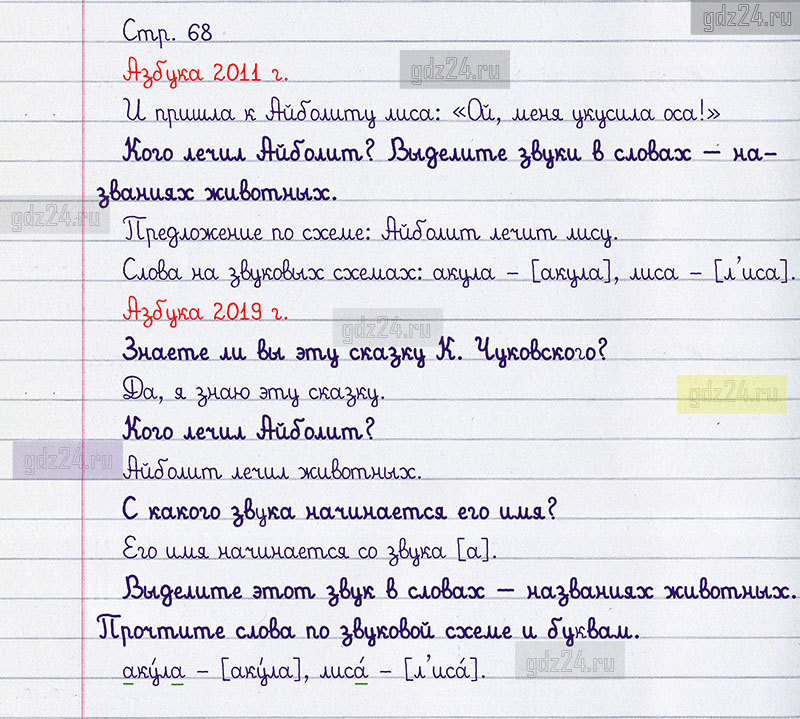 gdz24.ru
Стр. 68
Азбука 2011 г.
gdz24.ru
И пришла к Айболиту лиса: «Ой, меня укусила оса!»
Кого лечил Айболит? Выделите звуки в словах – на-
званиях животных.
gdz24.ru
Предложение по схеме: Айболит лечит лису.
Слова на звуковых схемах: акула – [акула], лиса – [л'иса].
Азбука 2019 г.
gdz24.ru
Знаете ли вы эту сказку К. Чуковского?
Да, я знаю эту сказку.
gdz24.ru
Кого лечил Айболит?
gdz24.ru
Айболит лечил животных.
С какого звука начинается его имя?
Его имя начинается со звука [а].
Выделите этот звук в словах – названиях животных.
Прочтите слова по звуковой схеме и буквам.
gdz24.ru
аку́ла – [аку́ла], лиса́ – [л'иса́].